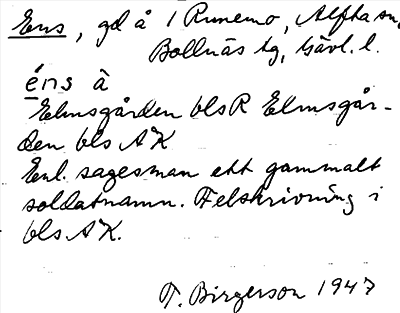 Ens, gd å 1 Runemo, Alfta sn,
Bollnäs tg, Gävl. l.
éns å
Elmsgården bls R Elmsgår-
den bls AK
Enl. sagesman ett gammalt
soldatnamn. Felskrivning i
bls AK.
T. Birgerson 1947